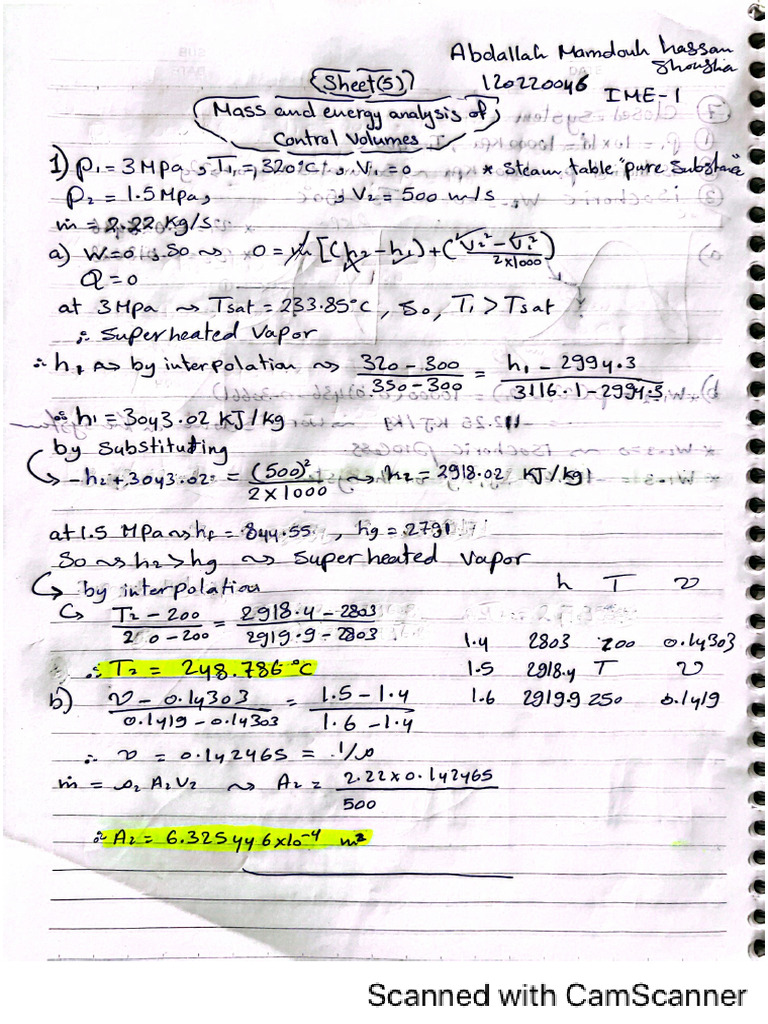 Abdallah Mamdouh hassan
Shousha
{Sheet(5)}
120220046
IME-1
Mass and energy analysis of
Control Volumes
1) P₁ = 3 MPa, T₁ = 320°C, V₁ = 0 * Steam table "Pure Substance"
P₂ = 1.5 MPa, , V₂ = 500 m/s
ṁ = 2.22 Kg/s
a) W=0, So ⇝ 0 = ṁ [(h₂ - h₁) + (V₂² - V₁² / 2×1000)
Q = 0
at 3 Mpa ⇝ Tsat = 233.85°C, So, T₁ > Tsat
∴ Superheated Vapor
∴ h₁ ⇝ by interpolation ⇝ 320 - 300 / 350 - 300 = h₁ - 2994.3 / 3116.1 - 2994.3
∴ h₁ = 3043.02 KJ/kg
by Substituting
-h₂ + 3043.02 = (500)² / 2×1000 ⇝ h₂ = 2918.02 KJ/kg
at 1.5 MPa ⇝ hf = 844.55, hg = 2791
So ⇝ h₂ > hg ⇝ Superheated Vapor
by interpolation h T v
T₂ - 200 / 250 - 200 = 2918.4 - 2803 / 2919.9 - 2803
1.4 2803 200 0.14303
∴ T₂ = 248.786 °C 1.5 2918.4 T v
b) v - 0.14303 / 0.1419 - 0.14303 = 1.5 - 1.4 / 1.6 - 1.4 1.6 2919.9 250 0.1419
∴ v = 0.142465 = 1/ρ
ṁ = ρ₂ A₂ V₂ ⇝ A₂ = 2.22 × 0.142465 / 500
∴ A₂ = 6.325446×10⁻⁴ m²
Scanned with CamScanner